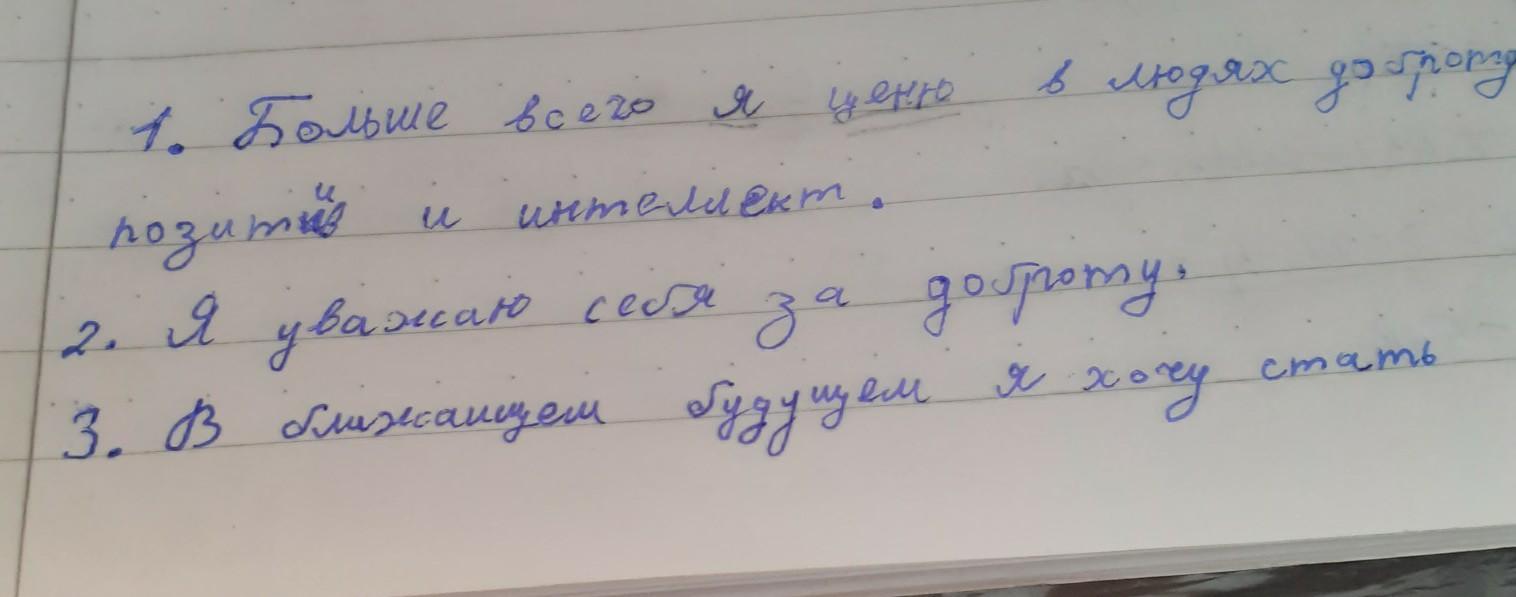 1. Больше всего я ценю в людях доброту
позитив и интеллект.
2. Я уважаю себя за доброту.
3. В ближаищем будущем я хочу стать